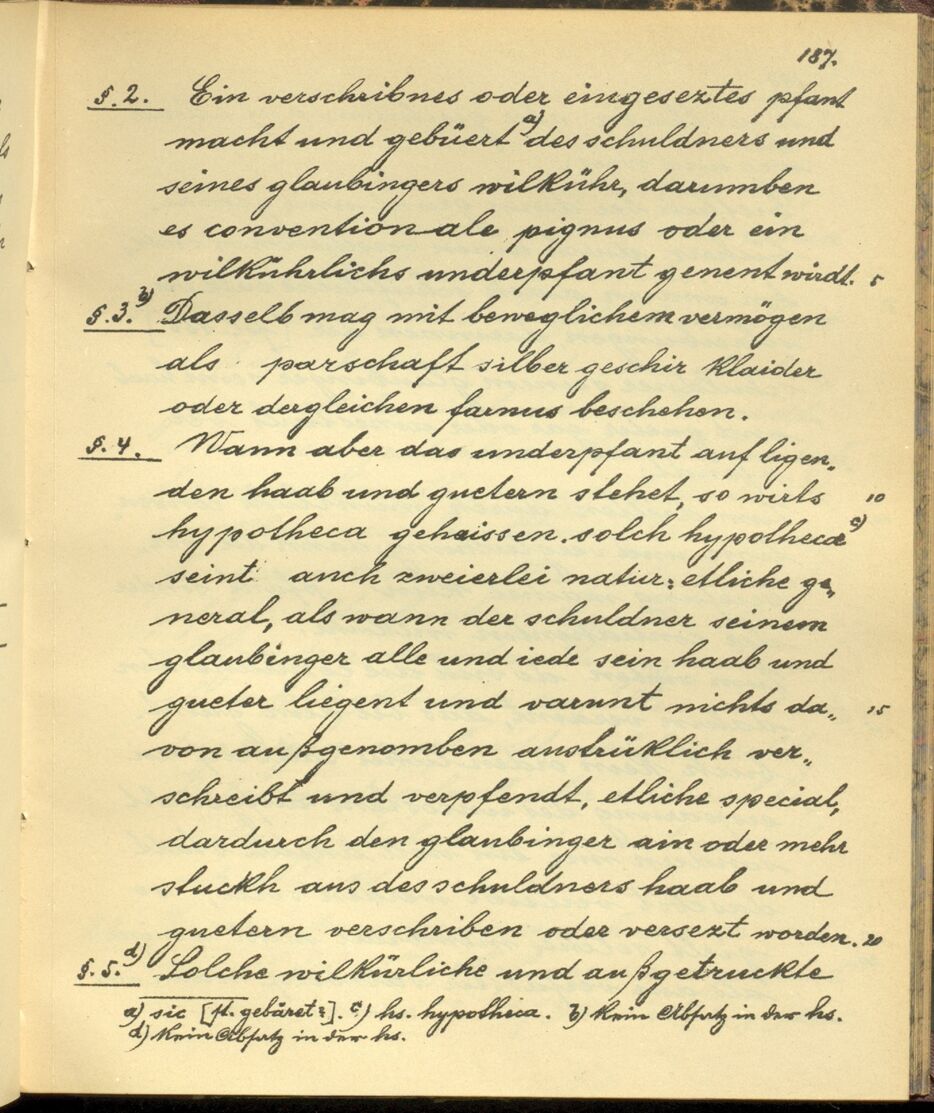 187.
§. 2. Ein verschribnes oder eingeseztes pfant
macht und gebüert a) des schuldners und
seines glaubingers wilkühr, darumben
es conventionale pignus oder ein
wilkührlichs underpfant genent wirdt. 5
§. 3. b) Dasselb mag mit beweglichem vermögen
als parschaft silber geschir klaider
oder dergleichen farnus beschehen.
§. 4. Wann aber das underpfant auf ligen„
den haab und guetern stehet, so wirts 10
hypotheca gehaissen. solch hypothecæ c)
seint auch zweierlei natur: etliche ge„
neral, als wann der schuldner seinem
glaubinger alle und iede sein haab und
gueter liegent und varunt nichts da„ 15
von außgenomben austrüklich ver„
schreibt und verpfendt, etliche special,
dardurch den glaubinger ain oder mehr
stuckh aus des schuldners haab und
guetern verschriben oder versezt worden. 20
§. 5. d) Solche wilkürliche und außgetruckte
a) sic [st. gebäret?]. c) hs. hypotheca. b) Kein Absatz in der hs.
d) Kein Absatz in der hs.